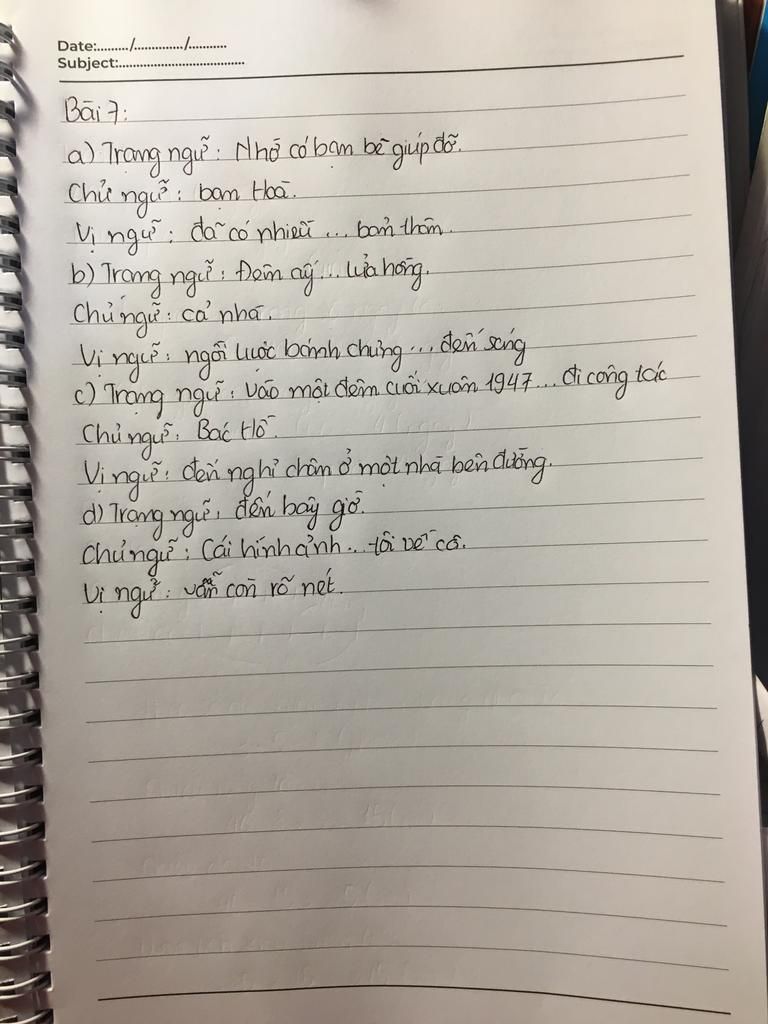 Date:........./............../...........
Subject:......................................
Bài 7:
a) Trạng ngữ: Nhờ có bạn bè giúp đỡ.
Chủ ngữ: bạn Hoà.
Vị ngữ: đã có nhiều ... bản thân.
b) Trạng ngữ: Đêm ấy ... lửa hồng.
Chủ ngữ: cả nhà.
Vị ngữ: ngồi luộc bánh chưng ... đến sáng
c) Trạng ngữ: vào một đêm cuối xuân 1947 ... đi công tác
Chủ ngữ: Bác Hồ.
Vị ngữ: đến nghỉ chân ở một nhà bên đường.
d) Trạng ngữ: đến bây giờ.
Chủ ngữ: Cái hình ảnh ... tôi về cô.
Vị ngữ: vẫn còn rõ nét.